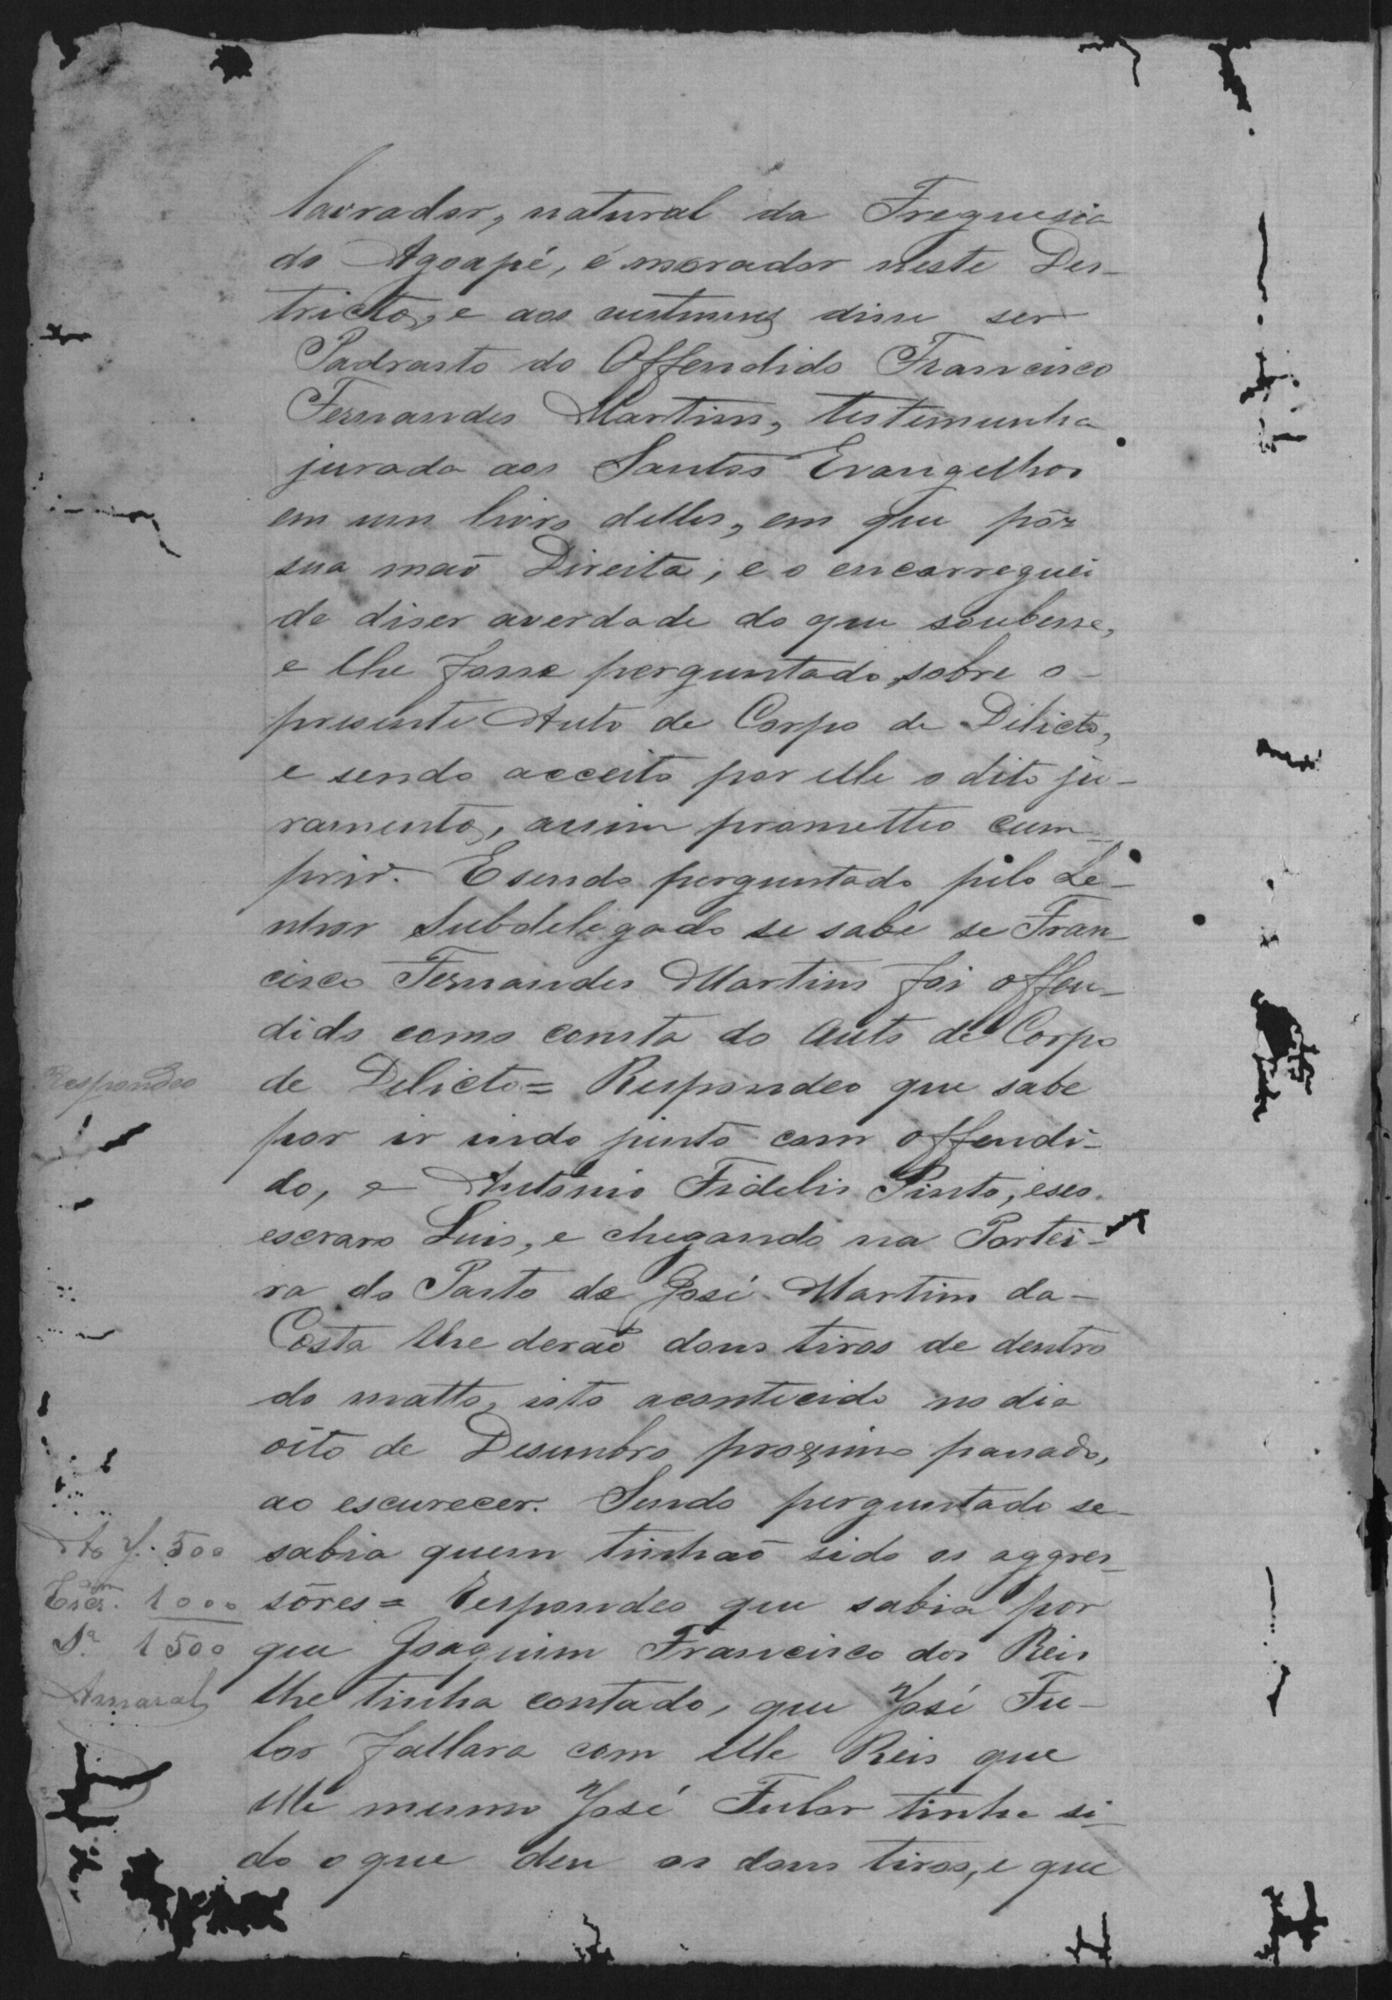 lavrador, natural da Freguesia
do Agoapé, e morador neste Des-
tricto, e aos custumes disse ser
Padrasto do Offendido Francisco
Fernandes Martins, testemunha
jurada aos Santos Evangelhos
em um livro delles, em que pôz
sua maõ Direita, e o encarreguei
de diser averdade do que soubesse,
e lhe fosse perguntado sobre o
presente Auto de Corpo de Dilicto,
e sendo acceito por elle o dito ju-
ramento, assim prometteo cum-
prir. Esendo perguntado pelo Se-
nhor Subdelegado se sabe se Fran-
cisco Fernandes Martins foi offen-
dido como consta do Auto de Corpo
Respondeo
de Delicto = Respondeo que sabe
por ir indo junto com offendi-
do, e Antonio Fidelis Pinto, eseo
escravo Luis, e chegando na Portei-
ra do Pasto de José Martins da-
Costa lhe deraõ dous tiros de dentro
do matto, isto acontecido no dia
oito de Desembro proximo passado,
ao escurecer. Sendo perguntado se-
sabia quem tinhaõ sido os aggres-
sôres = Respondeo que sabia por
que Joaquim Francisco dos Reis
lhe tinha contado, que José Fu-
lor fallara com elle Reis que
elle mesmo José Fulor tinha si-
do o que deu os dous tiros, e que
Ao J. 500
Escr.m 1000
Sª 1500
Amaral